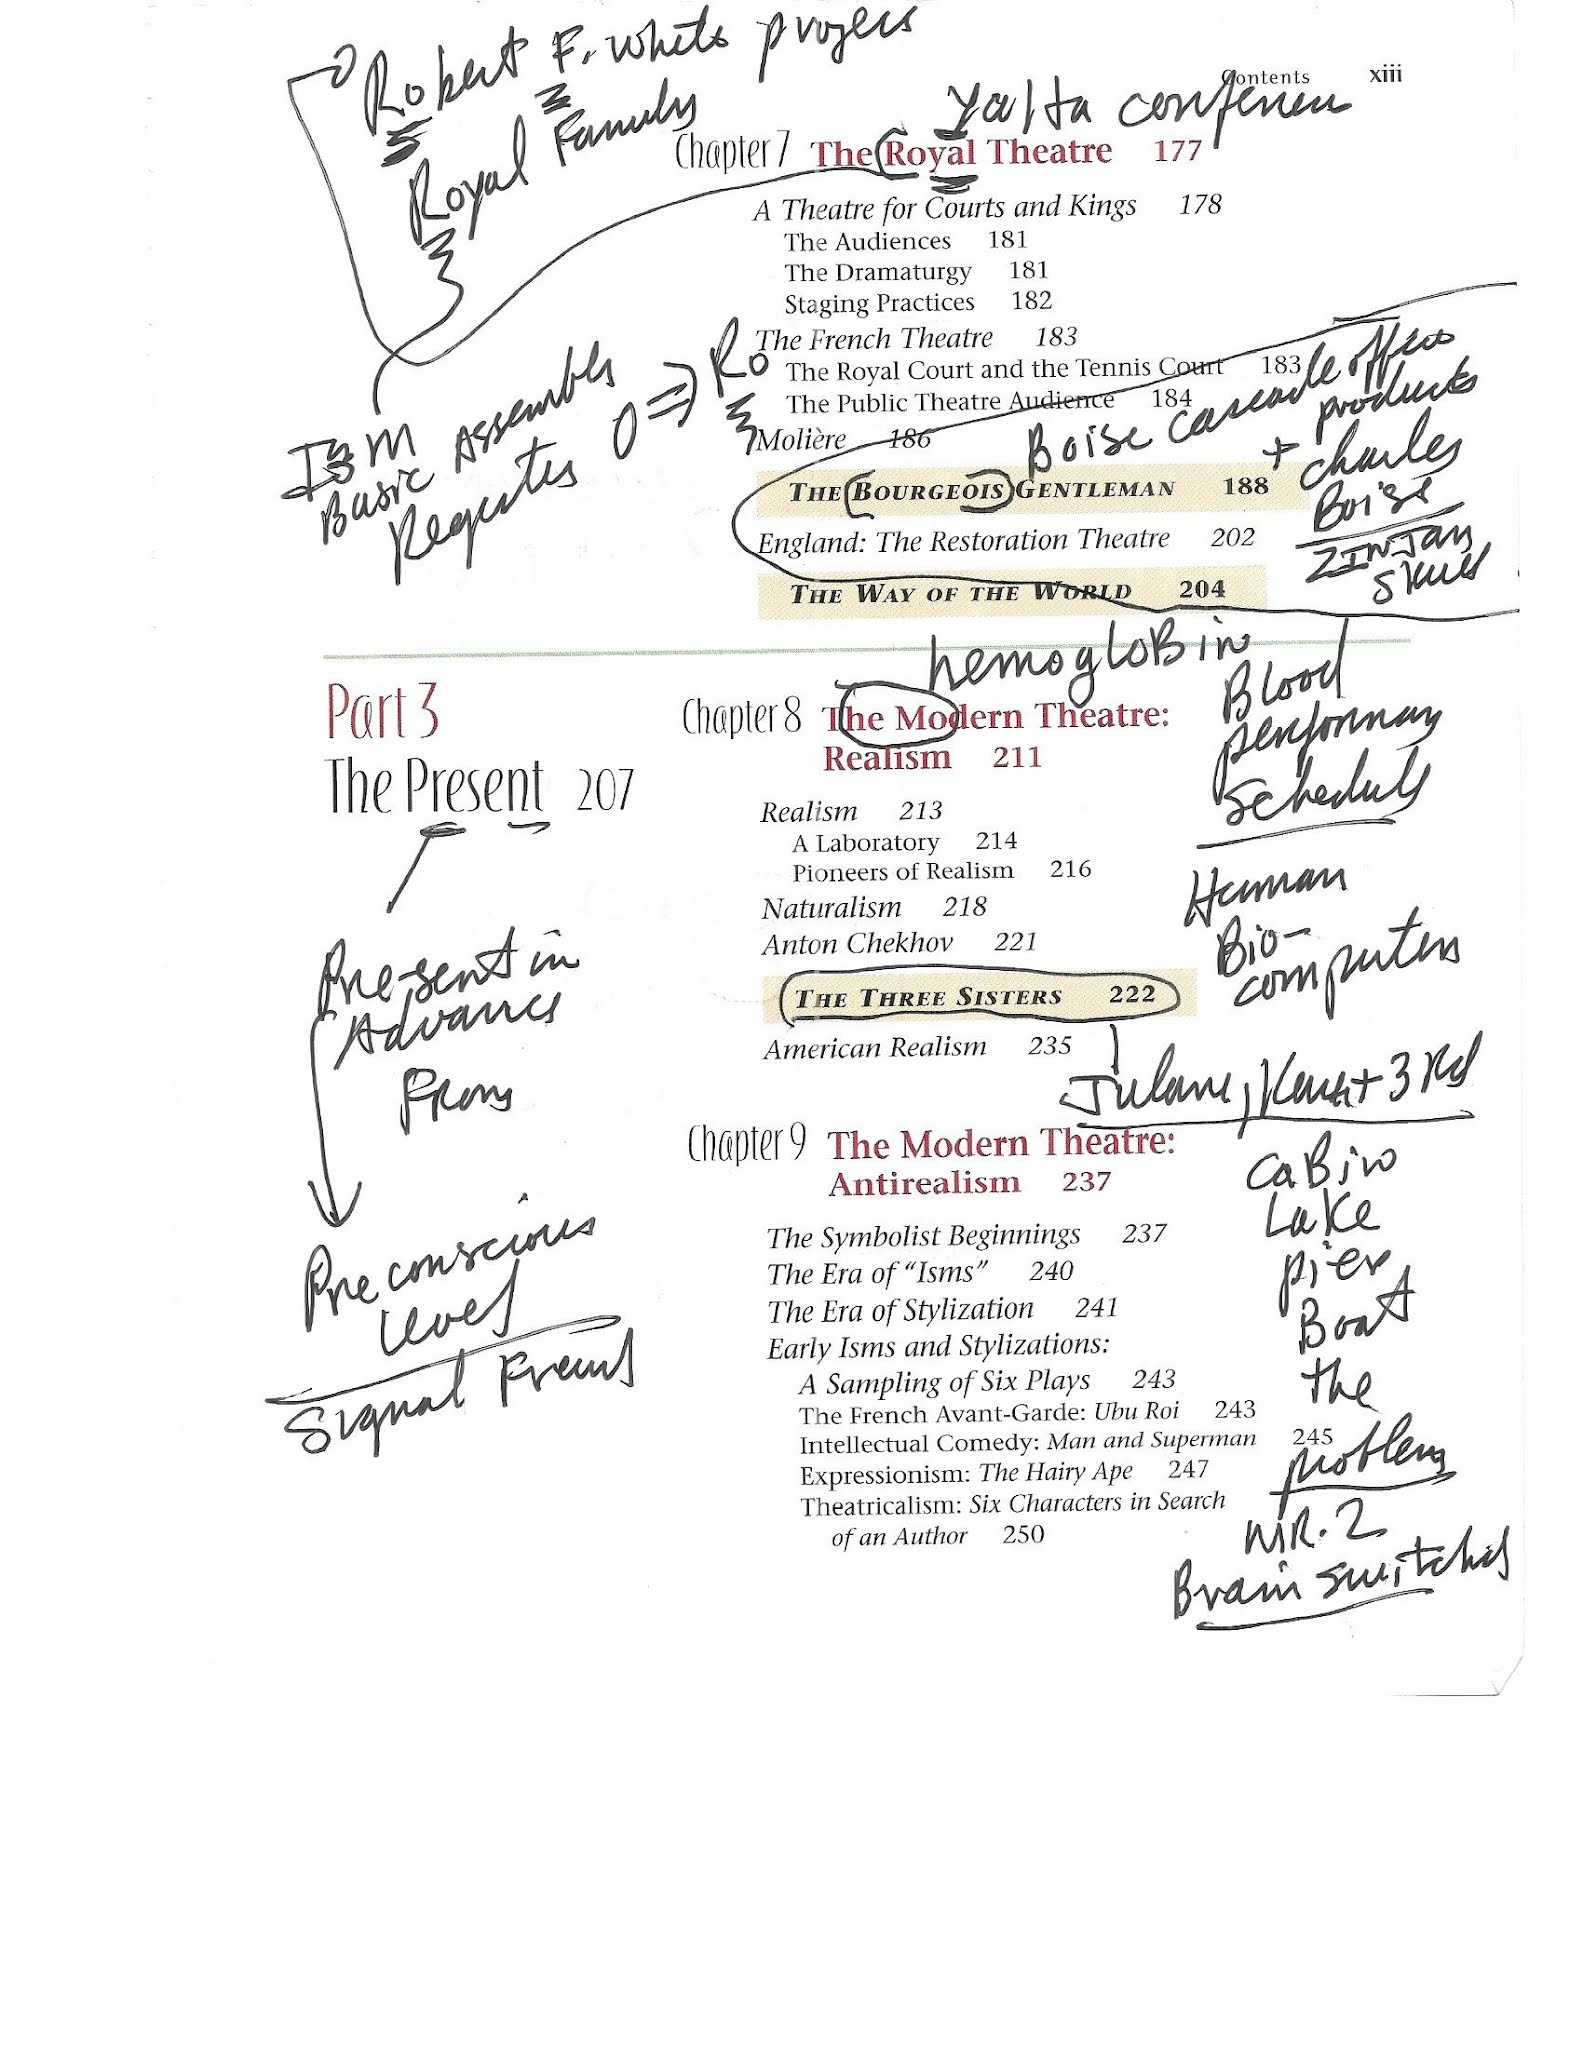 Robert F. White
Royal Family
Contents xiii
Yalta
Chapter 7 The Royal Theatre 177
A Theatre for Courts and Kings 178
The Audiences 181
The Dramaturgy 181
Staging Practices 182
The French Theatre 183
The Royal Court and the Tennis Court 183
The Public Theatre Audience 184
Molière 186
THE BOURGEOIS GENTLEMAN 188
England: The Restoration Theatre 202
THE WAY OF THE WORLD 204
IBM
Basic Assembler
0 => Ro
Boise Cascade office
products
+ Charles
Boise
hemogloBin
Blood
Part 3
The Present 207
Chapter 8 The Modern Theatre:
Realism 211
Realism 213
A Laboratory 214
Pioneers of Realism 216
Naturalism 218
Anton Chekhov 221
THE THREE SISTERS 222
American Realism 235
Human
Bio-
computers
Pre-sent in
Advance
From
Preconscious
level
Signal
3rd
Chapter 9 The Modern Theatre:
Antirealism 237
The Symbolist Beginnings 237
The Era of “Isms” 240
The Era of Stylization 241
Early Isms and Stylizations:
A Sampling of Six Plays 243
The French Avant-Garde: Ubu Roi 243
Intellectual Comedy: Man and Superman 245
Expressionism: The Hairy Ape 247
Theatricalism: Six Characters in Search
of an Author 250
CaBin
Lake
pier
Boat
the
problem
MR. 2
Brain switched